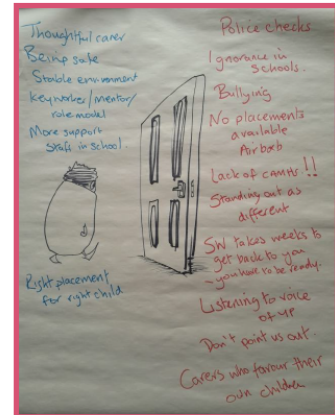 Thoughtful carer
Being safe
Stable environment
Keyworker/mentor/
role model
More support
Staff in school.
Right placement
for right child
Police checks
Ignorance in
schools.
Bullying
No placements
available
Airbnb
Lack of CAMHS !!
Standing out as
different
SW takes weeks to
get back to you
- you have to be ready.
Listening to voice
of YP
Don't point us out.
Carers who favour their
own children